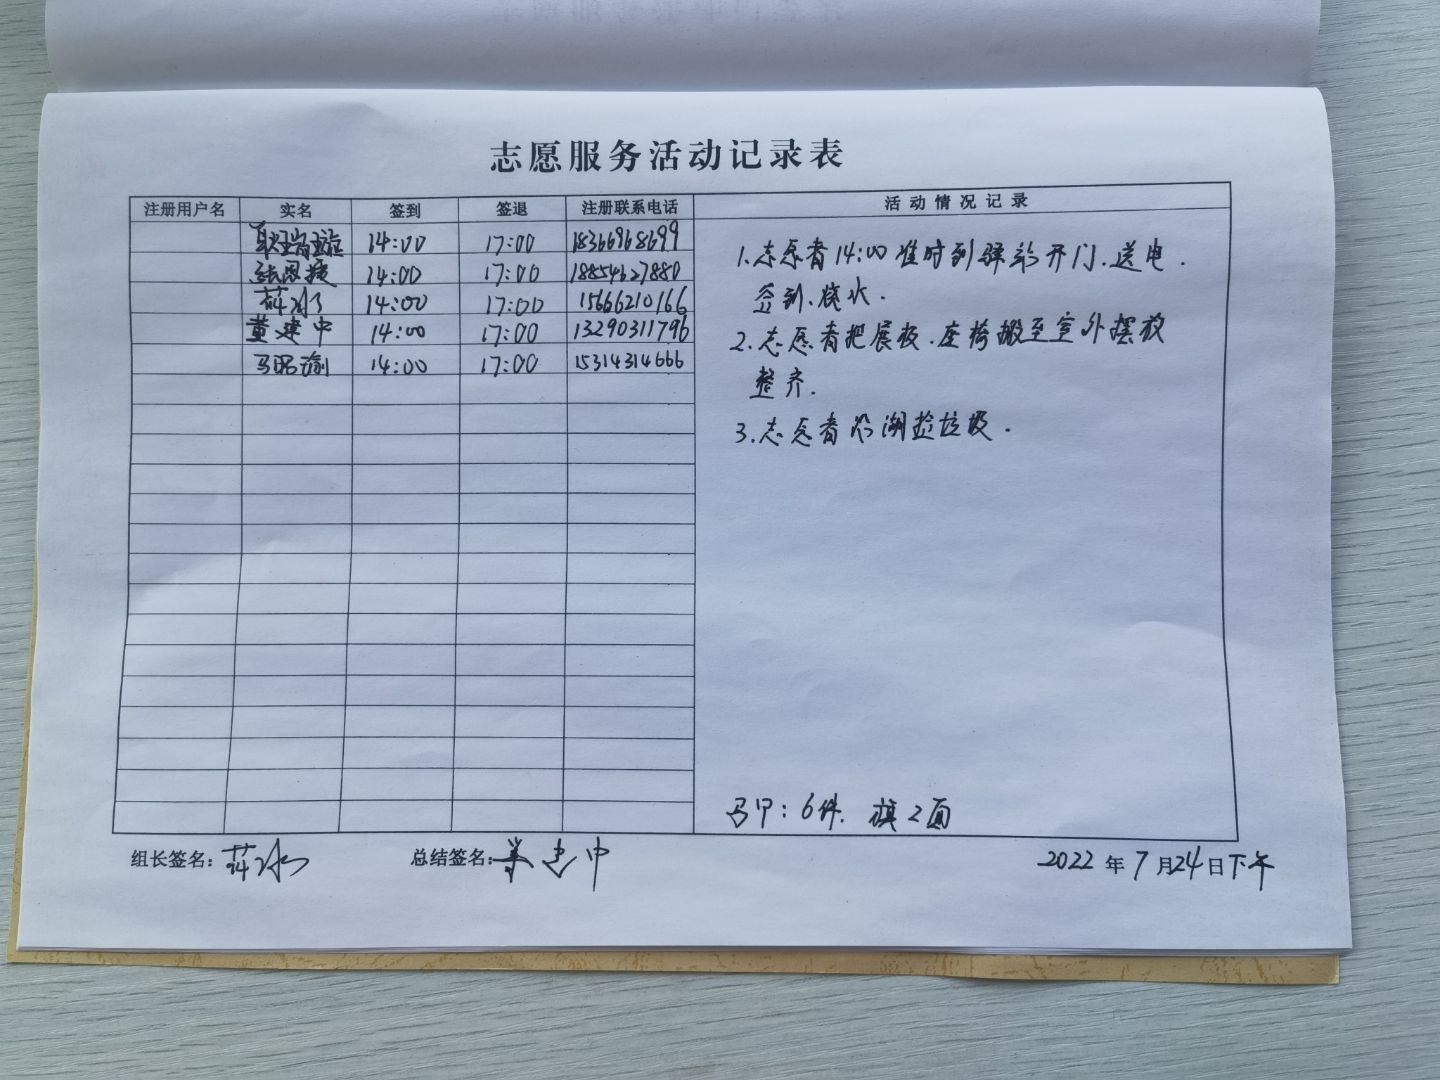 志愿服务活动记录表
注册用户名 实名 签到 签退 注册联系电话 活动情况记录
14:00 17:00 18366968699
张恩捷 14:00 17:00 18854627880
薛冰 14:00 17:00 15666210166
董建中 14:00 17:00 13290311796
马昭瑜 14:00 17:00 15314314666
1.志愿者14:00准时到驿站开门.送电.
签到.烧水.
2.志愿者把展板.座椅搬至室外摆放
整齐.
3.志愿者沿湖捡垃圾.
马甲:6件. 旗2面
组长签名:薛冰 总结签名:董建中 2022年7月24日下午